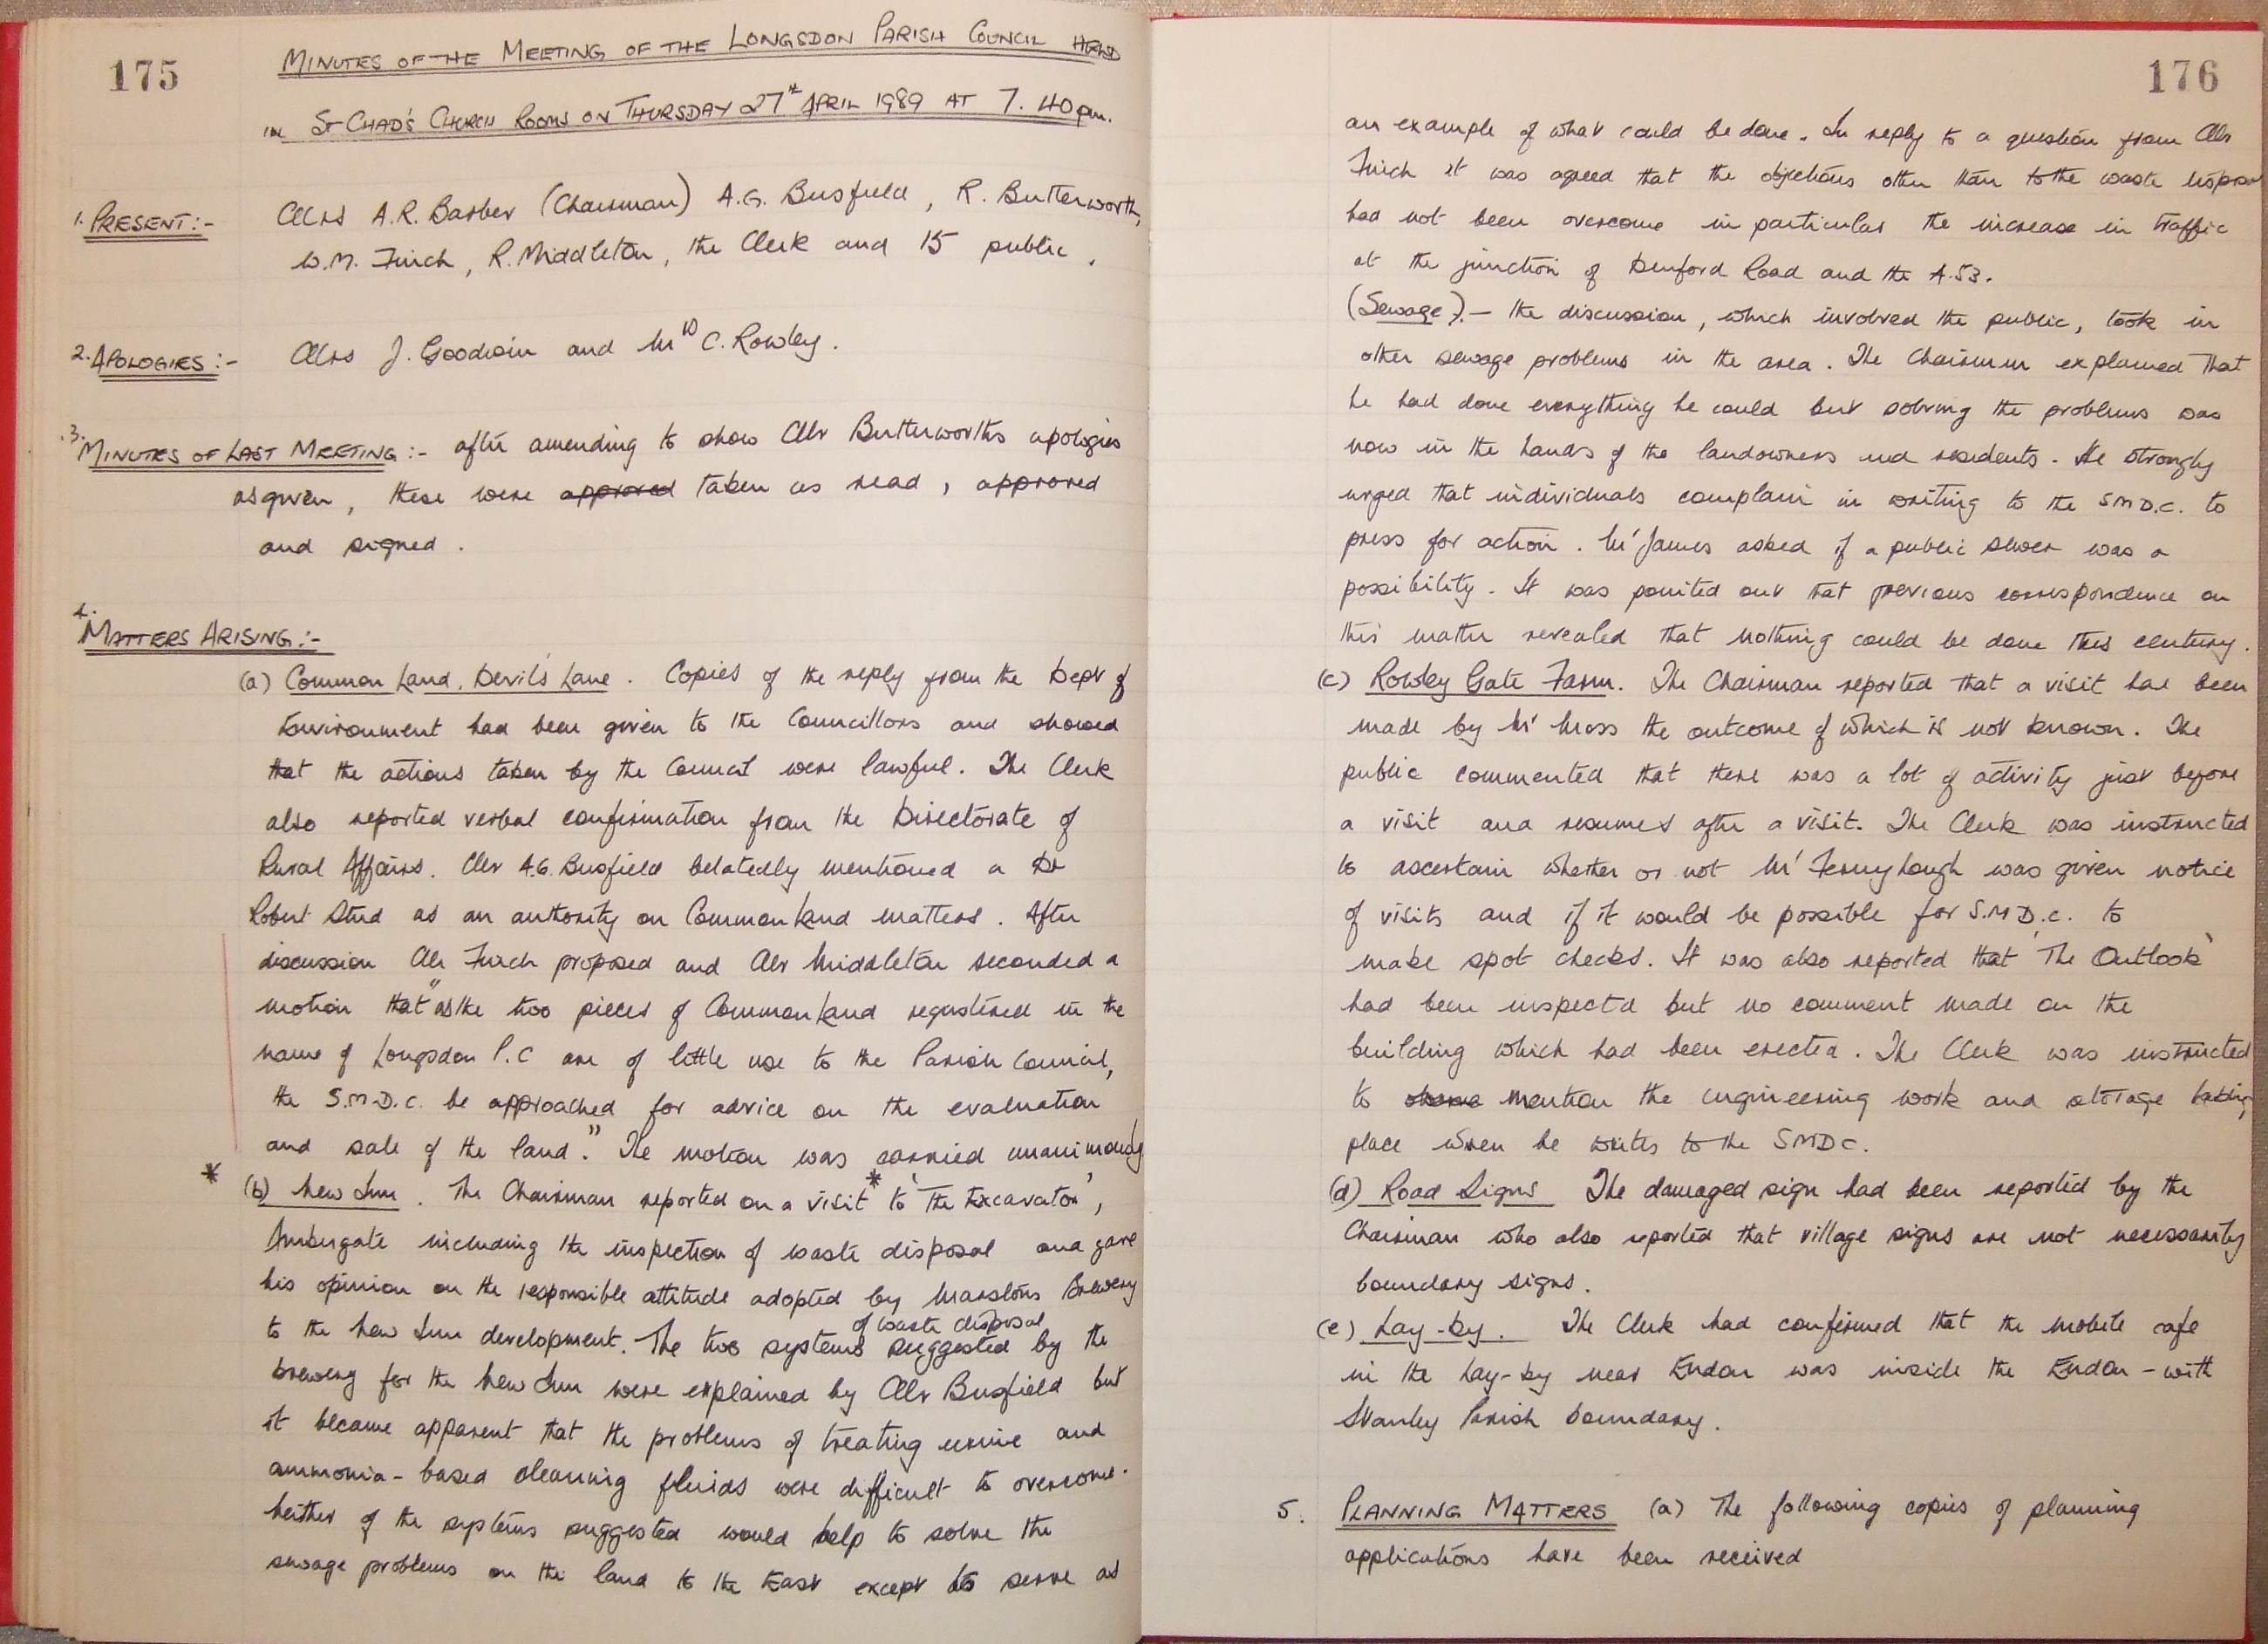 175
MINUTES OF THE MEETING OF THE LONGSDON PARISH COUNCIL HELD
IN ST CHAD'S CHURCH ROOMS ON THURSDAY 27th APRIL 1989 AT 7.40pm.
1. PRESENT:- Cllrs A.R. Barber (Chairman) A.G. Busfield, R. Butterworth,
W.M. Finch, R. Middleton, the Clerk and 15 public.
2. APOLOGIES:- Cllrs J. Goodwin and Mrs C. Rowley.
3. MINUTES OF LAST MEETING:- after amending to show Cllr Butterworths apologies
as given, these were approved taken as read, approved
and signed.
4. MATTERS ARISING:-
(a) Common Land, Devil's Lane. Copies of the reply from the Dept of
Environment had been given to the Councillors and showed
that the actions taken by the Council were lawful. The Clerk
also reported verbal confirmation from the Directorate of
Rural Affairs. Cllr A.G. Busfield belatedly mentioned a Dr
Robert Stud as an authority on Common Land matters. After
discussion Cllr Finch proposed and Cllr Middleton seconded a
motion that "as the two pieces of Common Land registered in the
name of Longsdon P.C are of little use to the Parish Council,
the S.M.D.C. be approached for advice on the evaluation
and sale of the land." The motion was carried unanimously
* (b) New Inn. The Chairman reported on a visit * to 'The Excavator',
Ambergate including the inspection of waste disposal and gave
his opinion on the responsible attitude adopted by Marstons Brewery
of waste disposal
to the New Inn development. The two systems suggested by the
brewery for the New Inn were explained by Cllr Busfield but
it became apparent that the problems of treating urine and
ammonia-based cleaning fluids were difficult to overcome.
Neither of the systems suggested would help to solve the
sewage problems on the land to the East except to serve as
176
an example of what could be done. In reply to a question from Cllr
Finch it was agreed that the objections other than to the waste disposal
had not been overcome in particular the increase in traffic
at the junction of Denford Road and the A.53.
(Sewage).- the discussion, which involved the public, took in
other sewage problems in the area. The Chairman explained that
he had done everything he could but solving the problems was
now in the hands of the landowners and residents. He strongly
urged that individuals complain in writing to the S.M.D.C. to
press for action. Mr James asked if a public sewer was a
possibility. It was pointed out that previous correspondence on
this matter revealed that nothing could be done this century.
(c) Rowley Gate Farm. The Chairman reported that a visit had been
made by Mr Moss the outcome of which is not known. The
public commented that there was a lot of activity just before
a visit and resumes after a visit. The Clerk was instructed
to ascertain whether or not Mr Fernyhough was given notice
of visits and if it would be possible for S.M.D.C. to
make spot checks. It was also reported that 'The Outlook'
had been inspected but no comment made on the
building which had been erected. The Clerk was instructed
to mention the engineering work and storage taking
place when he writes to the SMDC.
(d) Road Signs The damaged sign had been reported by the
Chairman who also reported that village signs are not necessarily
boundary signs.
(e) Lay-by. The Clerk had confirmed that the mobile cafe
in the Lay-by near Endon was inside the Endon-with
Stanley Parish boundary.
5. PLANNING MATTERS (a) The following copies of planning
applications have been received